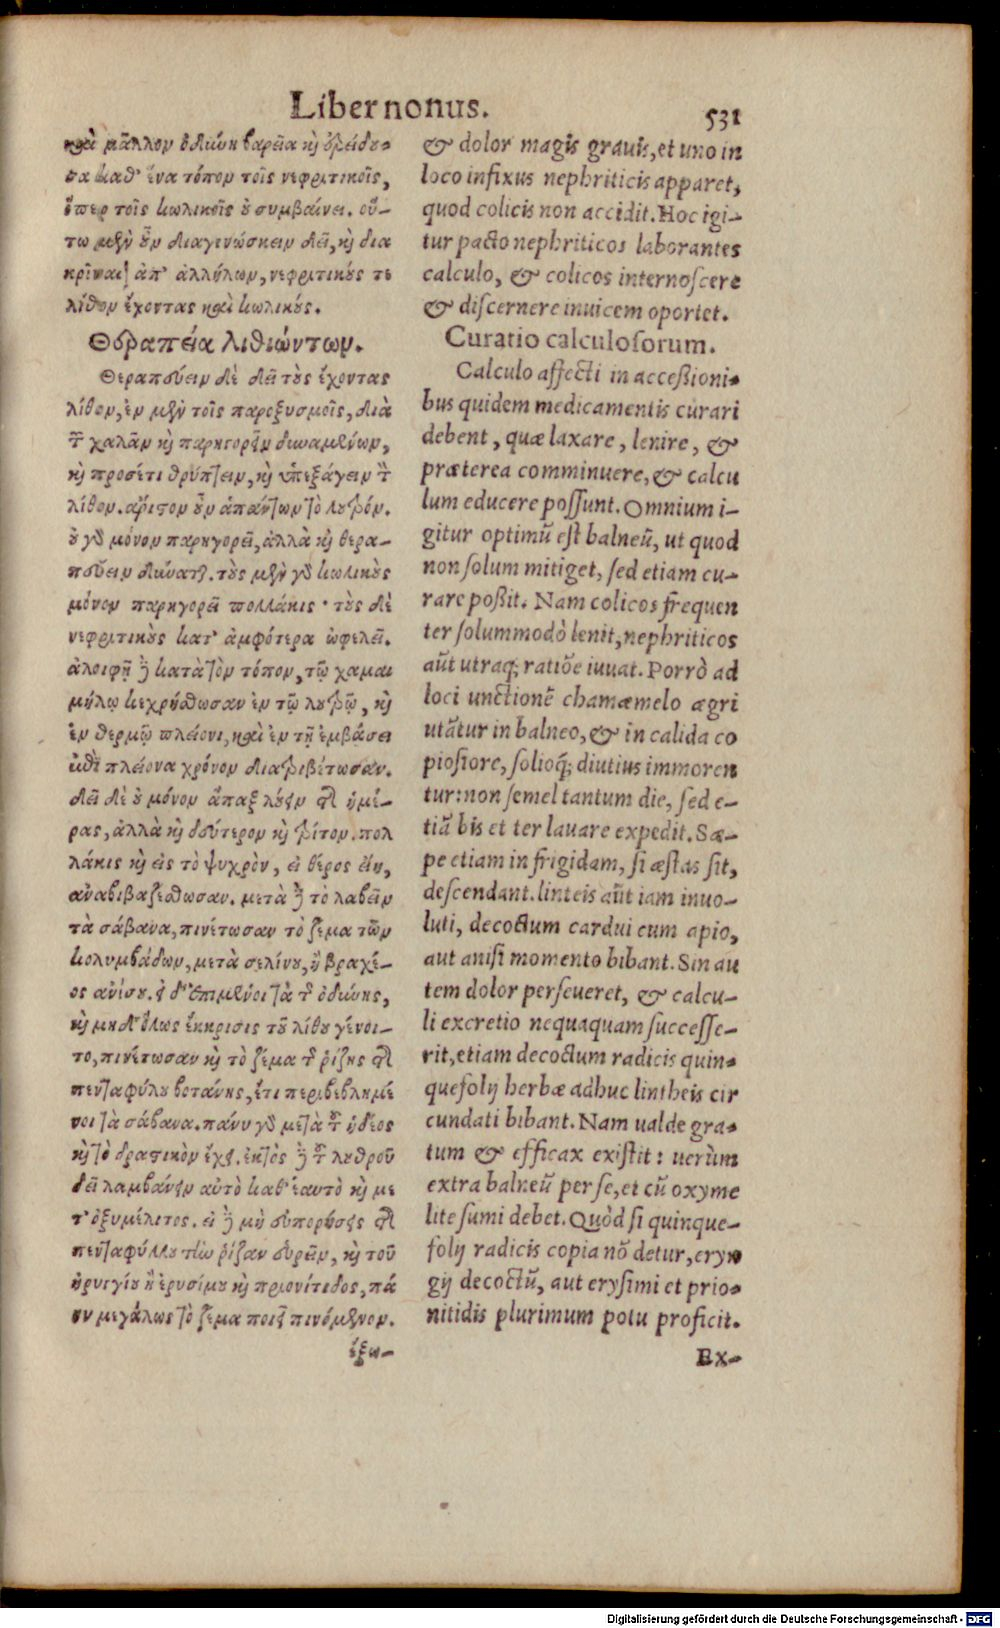 Liber nonus.
531
καὶ μᾶλλον ὀδύνη βαρεῖα κỳ ἐρείδου-
σα καθ' ἕνα τόπον τοῖς νεφριτικοῖς,
ὅπερ τοῖς κωλικοῖς οὐ συμβαίνει. οὕ-
τω μὲν οὖν διαγινώσκειν δεῖ, κỳ δια
κρῖναι ἀπ' ἀλλήλων, νεφριτικούς τε
λίθον ἔχοντας καὶ κωλικούς.
Θεραπεία λιθιώντων.
Θεραπεύειν δὲ δεῖ τοὺς ἔχοντας
λίθον, ἐν μὲν τοῖς παροξυσμοῖς, διὰ
τῶν χαλᾶν κỳ παρηγορεῖν δυναμένων,
κỳ προσέτι θρύπτειν, κỳ ὑπεξάγειν τὸν
λίθον. ἄριστον οὖν ἁπάντων τὸ λουτρόν.
οὐ γὰρ μόνον παρηγορεῖ, ἀλλὰ κỳ θερα-
πεύειν δύναται. τοὺς μὲν γὰρ κωλικοὺς
μόνον παρηγορεῖ πολλάκις · τοὺς δὲ
νεφριτικοὺς κατ' ἀμφότερα ὠφελεῖ.
ἀλοιφῇ δὲ κατὰ τὸν τόπον, τῷ χαμαι
μήλῳ κεχρήσθωσαν ἐν τῷ λουτρῷ, κỳ
ἐν θερμῷ πλείονι, καὶ ἐν τῇ ἐμβάσει
ἐπὶ πλείονα χρόνον διατριβέτωσαν.
δεῖ δὲ οὐ μόνον ἅπαξ λούειν τῆς ἡμέ-
ρας, ἀλλὰ κỳ δεύτερον κỳ τρίτον. πολ
λάκις κỳ εἰς τὸ ψυχρὸν, εἰ θέρος εἴη,
ἀναβιβαζέσθωσαν. μετὰ δὲ τὸ λαβεῖν
τὰ σάβανα, πινέτωσαν τὸ ζέμα τῶν
κολυμβάδων, μετὰ σελίνου, ἢ βραχέ-
ος ἀνίσου. εἰ δ' ἐπιμένοι τὰ τῆς ὀδύνης,
κỳ μηδ' ὅλως ἔκκρισις τοῦ λίθου γένοι-
το, πινέτωσαν κỳ τὸ ζέμα τῆς ῥίζης τῆς
πενταφύλου βοτάνης, ἔτι περιβεβλημέ
νοι τὰ σάβανα. πάνυ γὰρ μετὰ τοῦ ἡδέος
κỳ τὸ δραστικὸν ἔχει. ἐκτὸς δὲ τοῦ λουτροῦ
δεῖ λαμβάνειν αὐτὸ καθ' ἑαυτὸ κỳ με
τ' ὀξυμέλιτος. εἰ δὲ μὴ εὐπορήσεις τῆς
πενταφύλλου τὴν ῥίζαν εὑρεῖν, κỳ τοῦ
ἠρυγγίου ἢ ἐρυσίμου κỳ πριονίτιδος, πά
νυ μεγάλως τὸ ζέμα ποιεῖ πινόμενον.
ἔξω-
& dolor magis grauis, et uno in
loco infixus nephriticis apparet,
quod colicis non accidit. Hoc igi-
tur pacto nephriticos laborantes
calculo, & colicos internoscere
& discernere inuicem oportet.
Curatio calculosorum.
Calculo affecti in accessioni-
bus quidem medicamentis curari
debent, quæ laxare, lenire, &
præterea comminuere, & calcu
lum educere possunt. Omnium i-
gitur optimũ est balneũ, ut quod
non solum mitiget, sed etiam cu-
rare poßit. Nam colicos frequen
ter solummodò lenit, nephriticos
aũt utraq; ratiõe iuuat. Porrò ad
loci unctionẽ chamæmelo ægri
utãtur in balneo, & in calida co
piosiore, solioq́; diutius immoren
tur: non semel tantum die, sed e-
tiã bis et ter lauare expedit. Sæ-
pe etiam in frigidam, si æstas sit,
descendant. linteis aũt iam inuo-
luti, decoctum cardui cum apio,
aut anisi momento bibant. Sin au
tem dolor perseueret, & calcu-
li excretio nequaquam successe-
rit, etiam decoctum radicis quin-
quefolij herbæ adhuc lintheis cir
cundati bibant. Nam ualde gra-
tum & efficax existit: uerùm
extra balneũ per se, et cũ oxyme
lite sumi debet. Quòd si quinque-
folij radicis copia nõ detur, eryn
gij decoctũ, aut erysimi et prio-
nitidis plurimum potu proficit.
Ex-
Digitalisierung gefördert durch die Deutsche Forschungsgemeinschaft - DFG